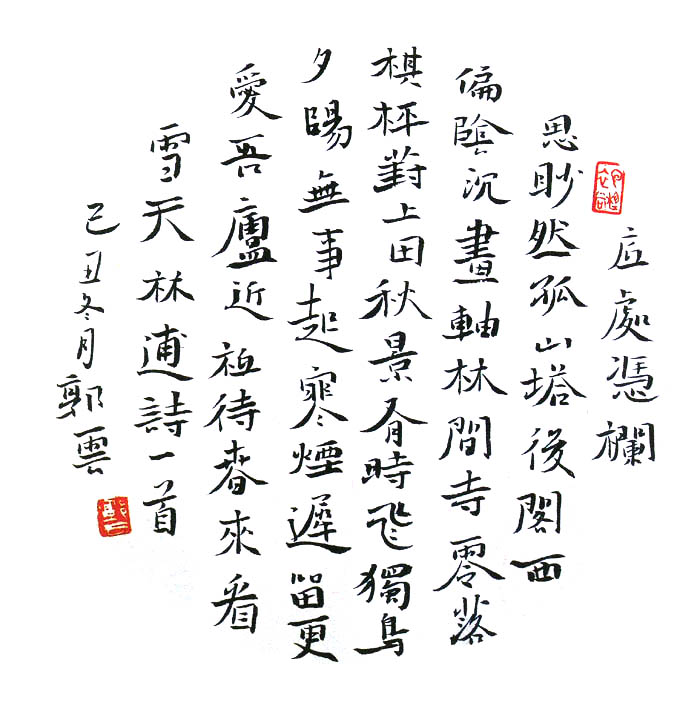 底處憑欄
思眇然孤山塔後閣西
偏陰沉畫軸林間寺零落
棋枰葑上田秋景有時飛獨鳥
夕陽無事起寒煙遲留更
愛吾廬近祗待春來看
雪天林逋詩一首
己丑冬月郭雲